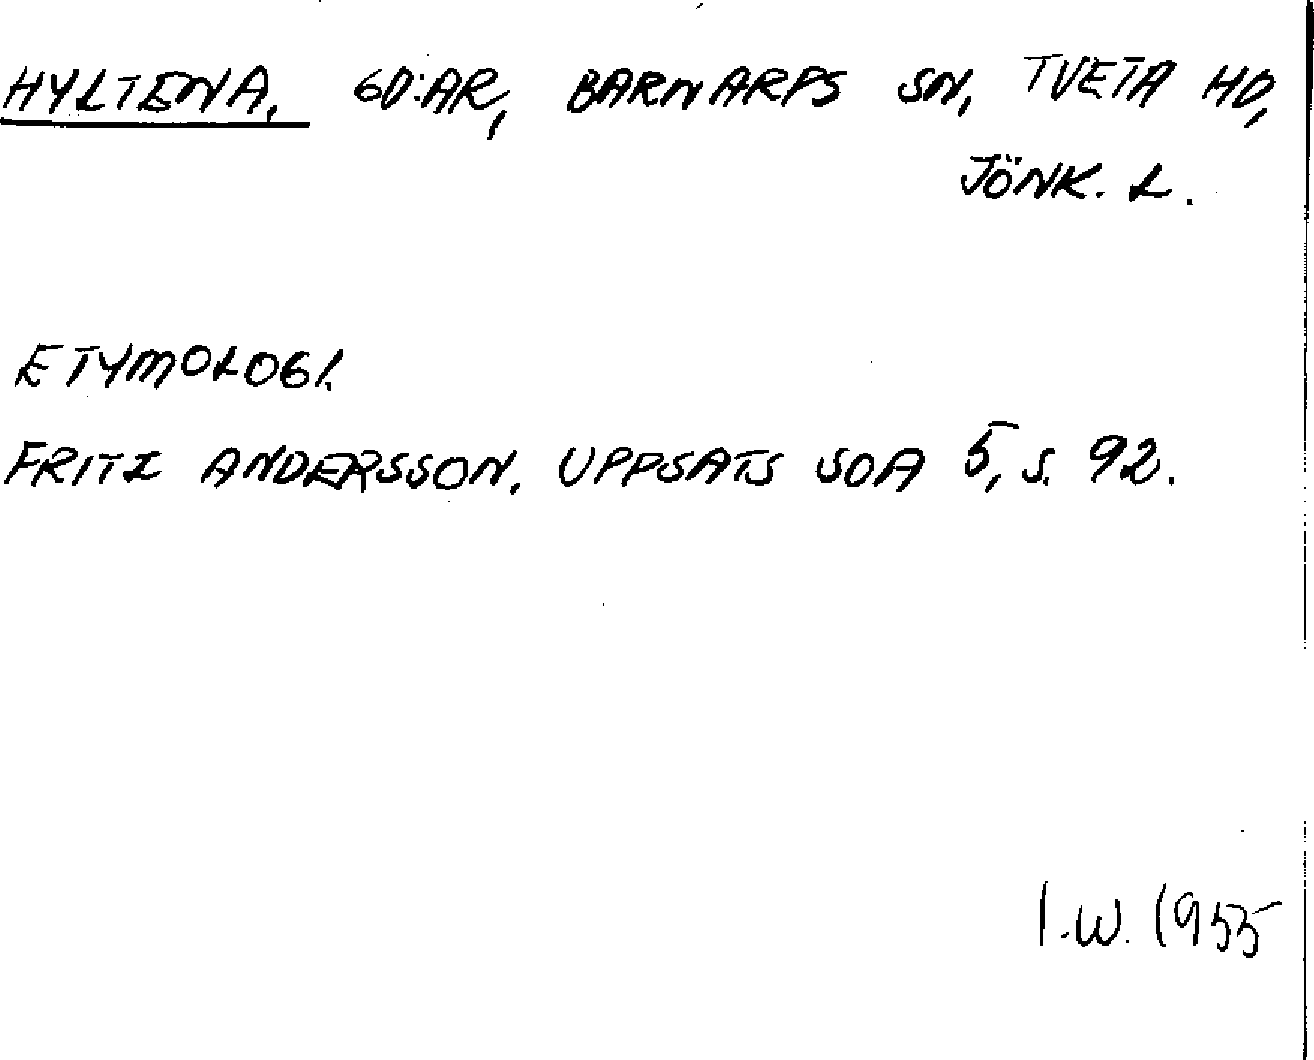 HYLTENA, GD:AR, BARNARPS SN, TVETA HD,
JÖNK. L.
ETYMOLOGI.
FRITZ ANDERSSON. UPPSATS SOA 5, S. 92.
I.W. 1955